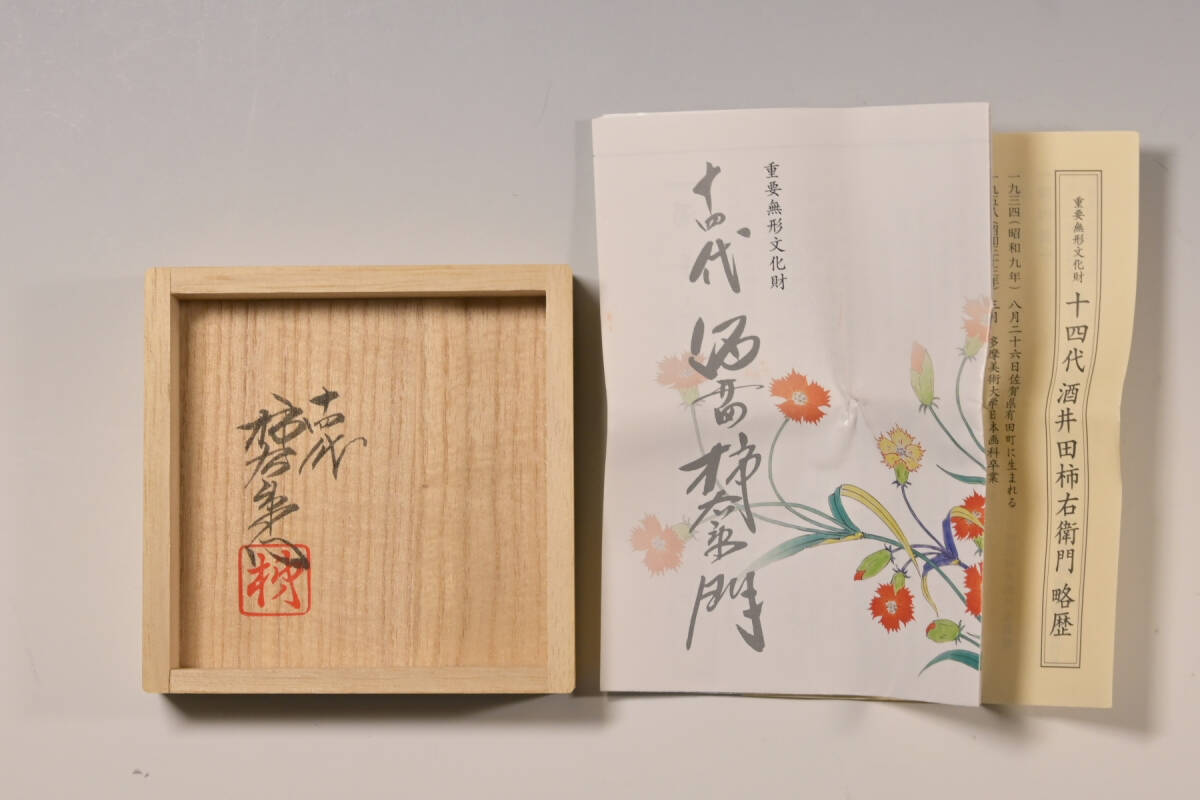 十四代
柿右衛門
柿
重要無形文化財
十四代 酒井田柿右衛門
重要無形文化財 十四代 酒井田柿右衛門 略歴
一九三四(昭和九年) 八月二十六日佐賀県有田町に生まれる
一九五八(昭和三十三年) 三月 多摩美術大学日本画科卒業